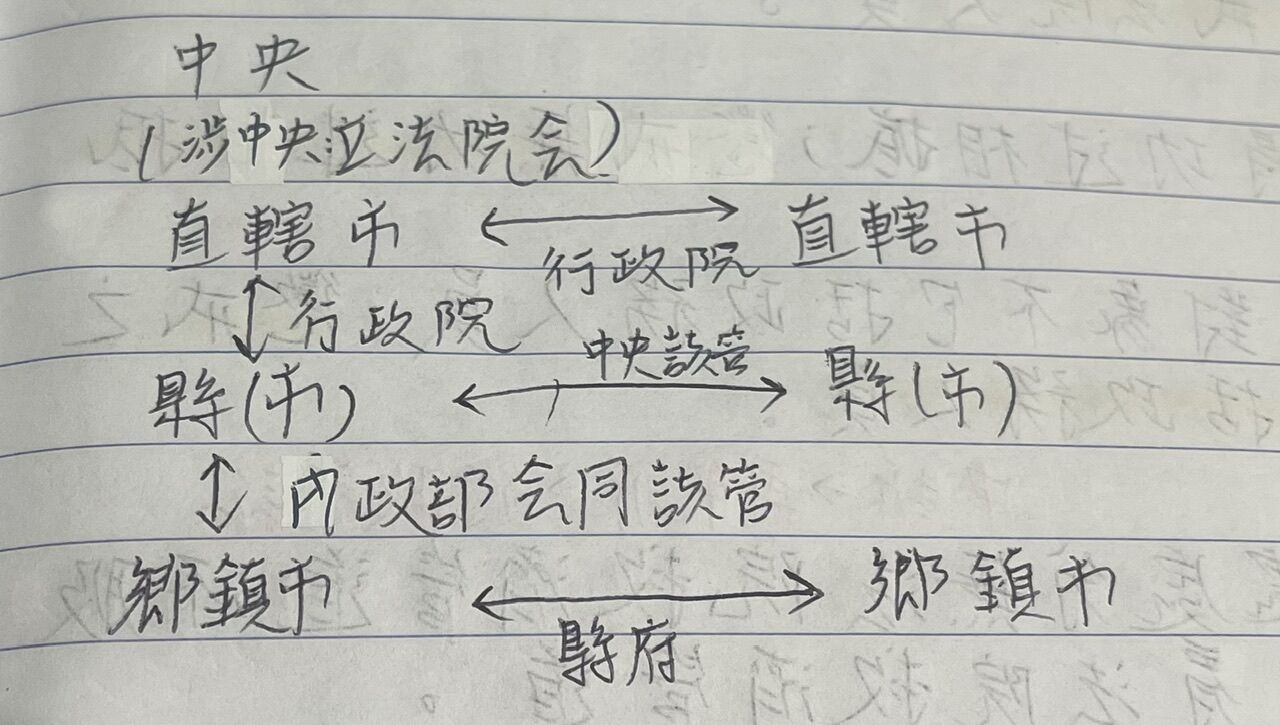 中央
(涉中央立法院会)
直轄市 ⟷ 直轄市
行政院
↕ 行政院
中央該管
縣(市) ⟷ 縣(市)
↕ 內政部会同該管
鄉鎮市 ⟷ 鄉鎮市
縣府